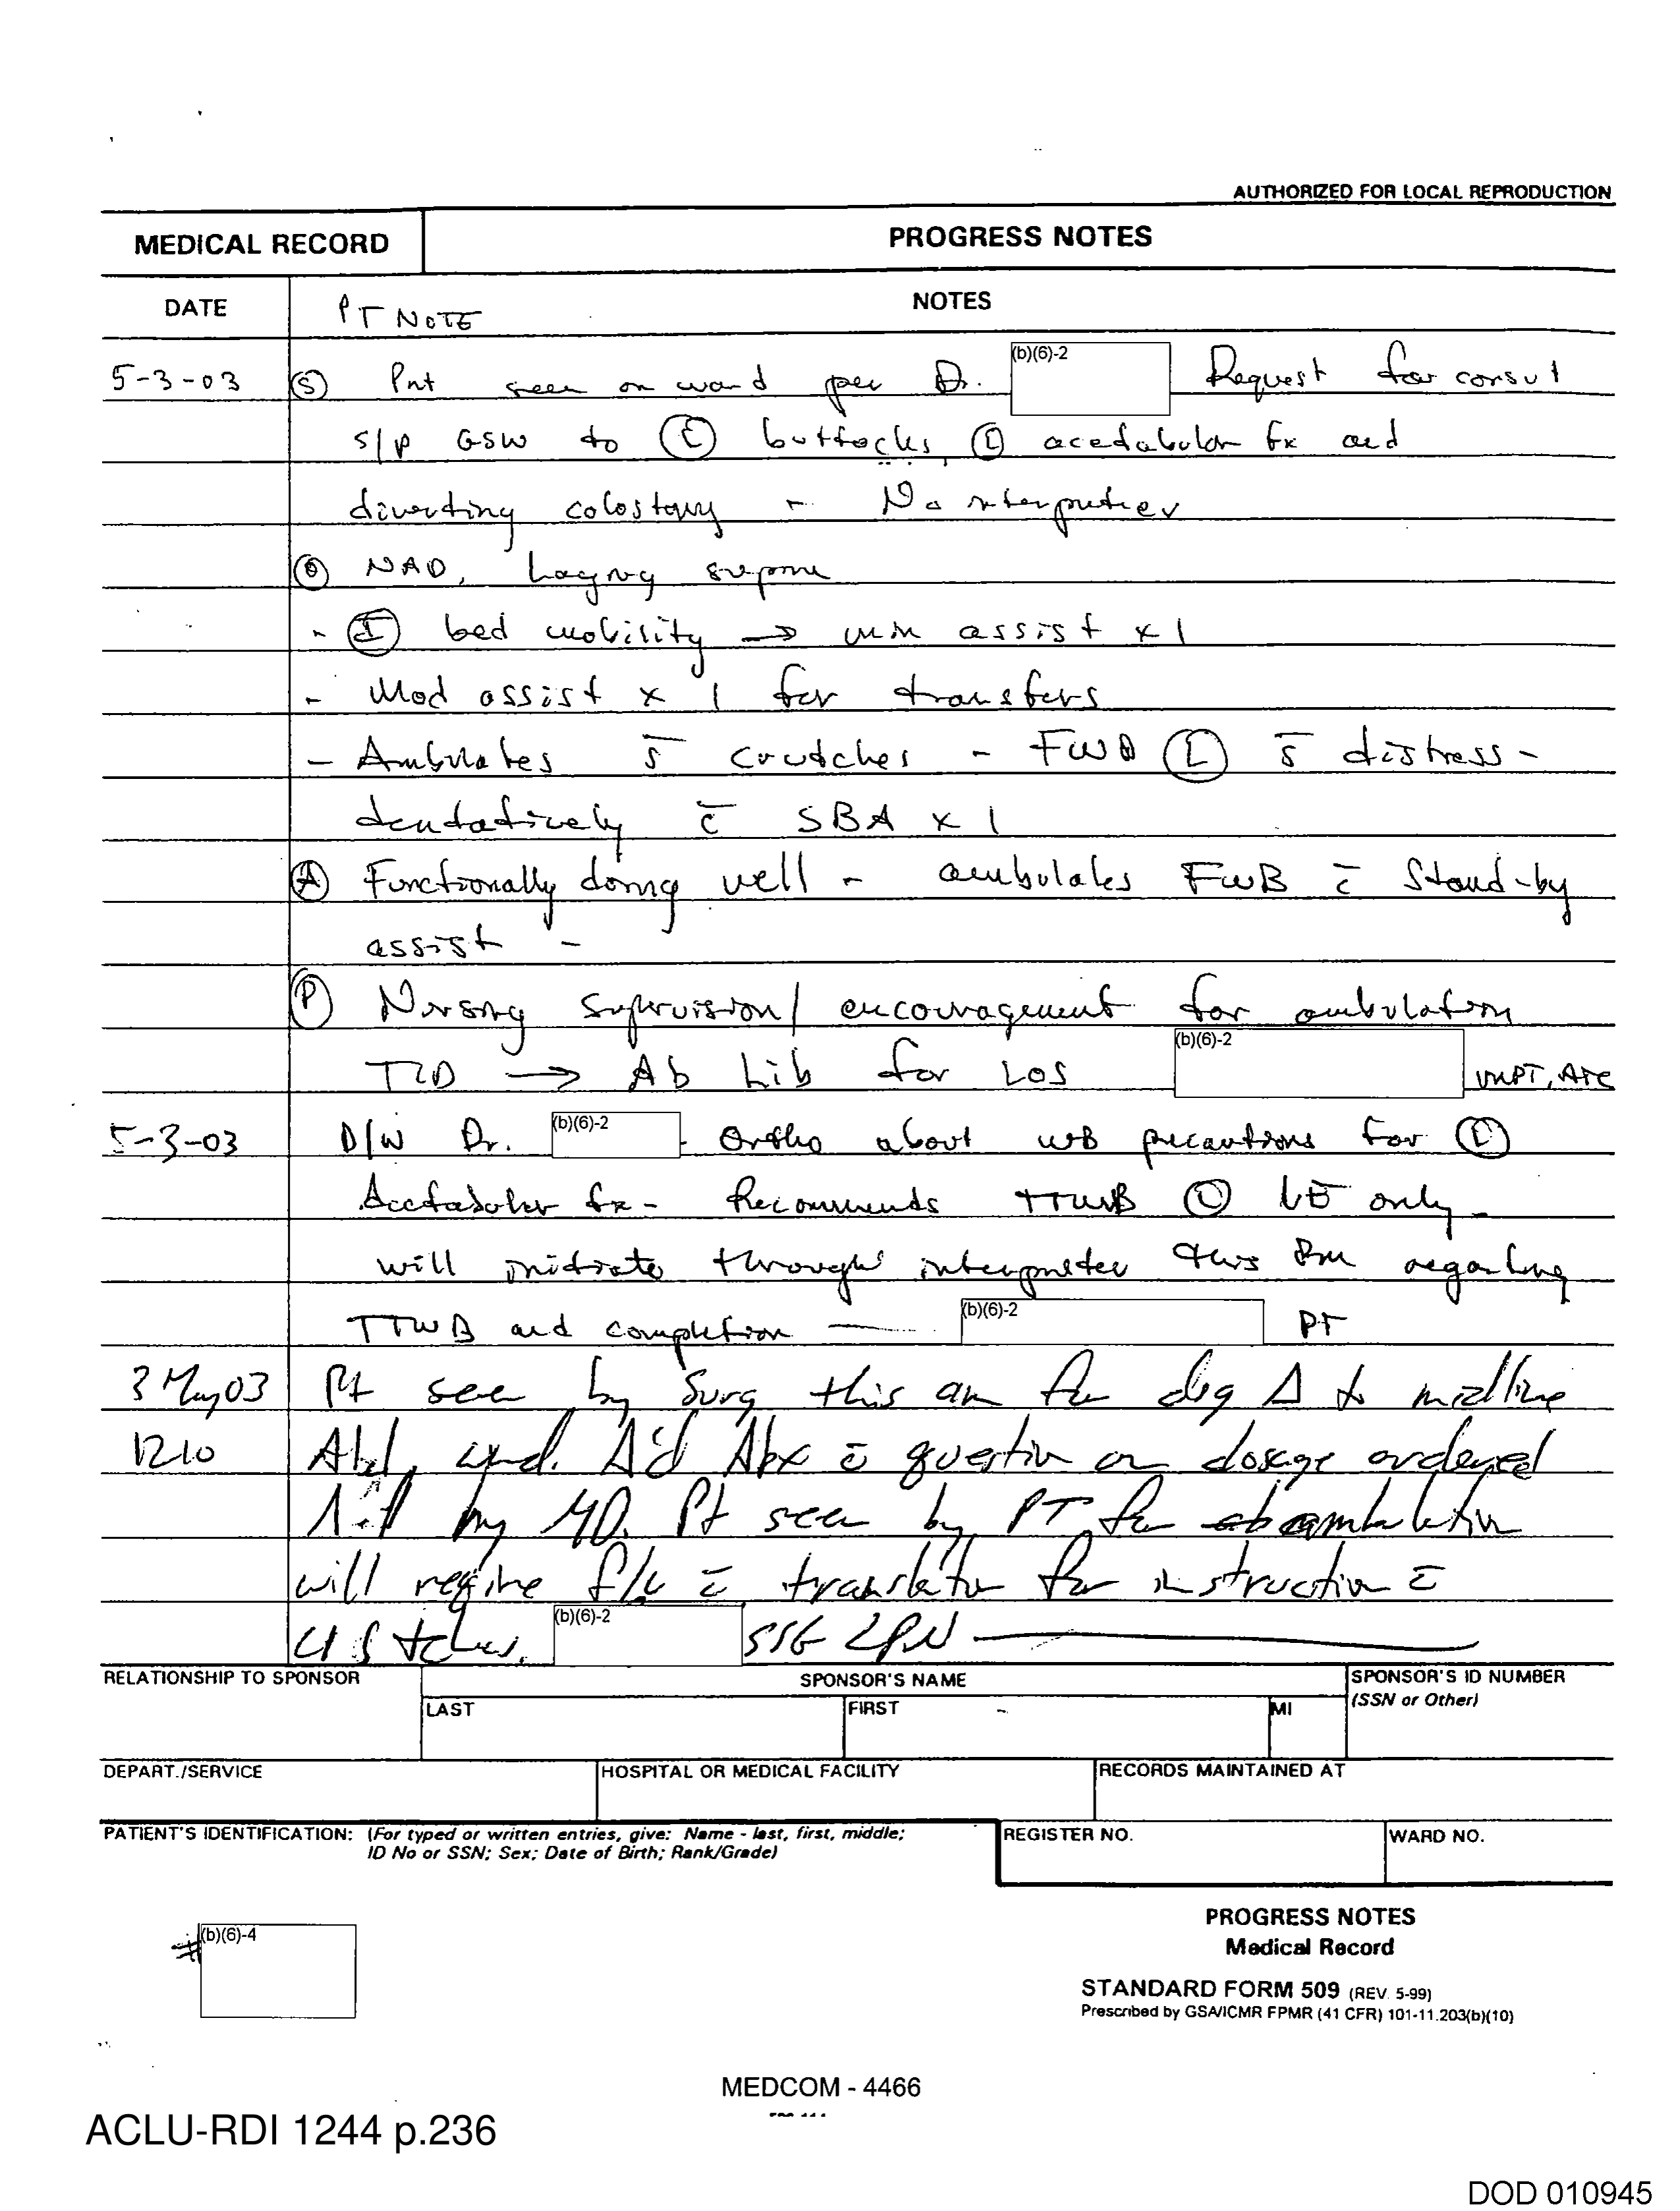 AUTHORIZED FOR LOCAL REPRODUCTION
MEDICAL RECORD
PROGRESS NOTES
DATE
NOTES
PT NOTE
5-3-03 Ⓢ Pnt seen on ward per Dr. (b)(6)-2 Request for consult
s/p GSW to Ⓛ buttocks, Ⓛ acetabular fx and
diverting colostomy - No interpretier
Ⓞ NAD, laying supine
- Ⓘ bed mobility → min assist x 1
- Mod assist x 1 for transfers
- Ambulates s̄ crutches - FWB Ⓛ s̄ distress -
tentatively c̄ SBA x 1
Ⓐ Functionally doing well - ambulates FWB c̄ Stand-by
assist -
Ⓟ Nursing supervision/encouragement for ambulation
TID → Ab Lib for LOS (b)(6)-2 MPT, ATC
5-3-03 D/W Dr. (b)(6)-2 - Ortho about WB precautions for Ⓛ
Acetabular fx - Recommends TTWB Ⓛ LE only -
will initiate through interpreter this pm regarding
TTWB and completion — (b)(6)-2 PT
3 May 03 Pt seen by Surg this am for dsg Δ to midline
1210 Abd. Δ'd Abx c̄ question on dosage ordered
by MD. Pt seen by PT for ambulation
will require f/u c̄ translator for instruction c̄
(b)(6)-2 SSG LPN
RELATIONSHIP TO SPONSOR
SPONSOR'S NAME
SPONSOR'S ID NUMBER
(SSN or Other)
LAST
FIRST
MI
DEPART./SERVICE
HOSPITAL OR MEDICAL FACILITY
RECORDS MAINTAINED AT
PATIENT'S IDENTIFICATION: (For typed or written entries, give: Name - last, first, middle;
ID No or SSN; Sex; Date of Birth; Rank/Grade)
REGISTER NO.
WARD NO.
# (b)(6)-4
PROGRESS NOTES
Medical Record
STANDARD FORM 509 (REV. 5-99)
Prescribed by GSA/ICMR FPMR (41 CFR) 101-11.203(b)(10)
MEDCOM - 4466
ACLU-RDI 1244 p.236
DOD 010945